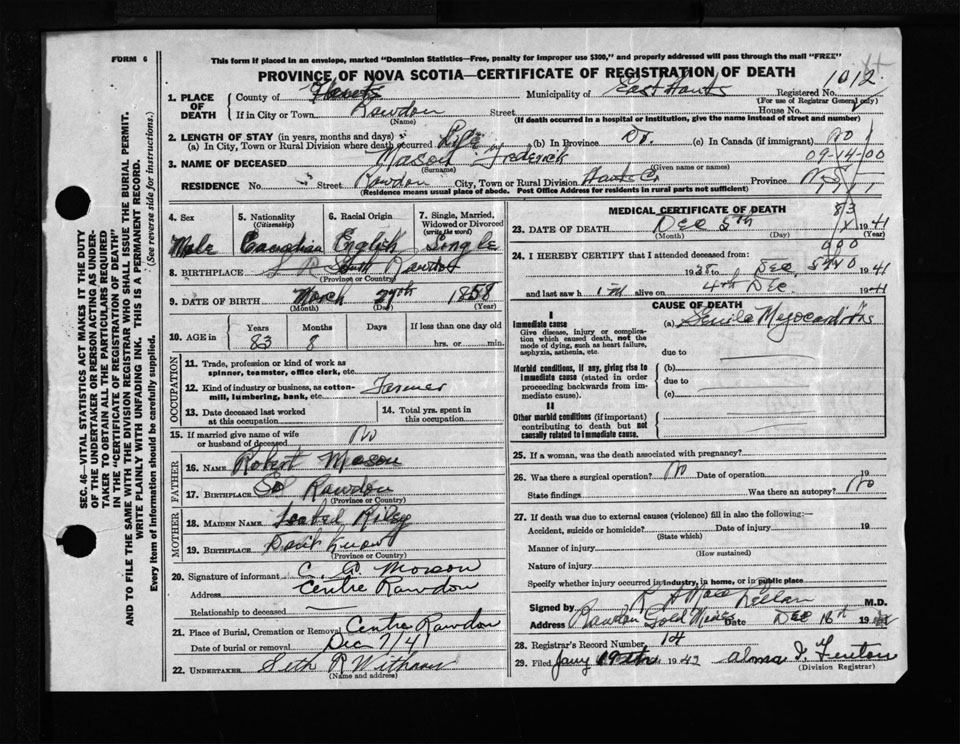 FORM 6
This form if placed in an envelope, marked "Dominion Statistics—Free, penalty for improper use $300," and properly addressed will pass through the mail "FREE"
PROVINCE OF NOVA SCOTIA—CERTIFICATE OF REGISTRATION OF DEATH
1012
1. PLACE OF DEATH County of Hants Municipality of East Hants Registered No.
(For use of Registrar General only)
If in City or Town Rawdon Street House No.
(Name) (If death occurred in a hospital or institution, give the name instead of street and number)
2. LENGTH OF STAY (in years, months and days)
(a) In City, Town or Rural Division where death occurred Life (b) In Province Do. (c) In Canada (if immigrant) No
3. NAME OF DECEASED Mason Frederick 09-14-00
(Surname) (Given name or names)
RESIDENCE No. Street Rawdon City, Town or Rural Division Hants Co Province N.S.
(Residence means usual place of abode. Post Office Address for residents in rural parts not sufficient)
4. Sex 5. Nationality 6. Racial Origin 7. Single, Married, Widowed or Divorced
(Citizenship) (write the word)
Male Canadian English Single
8. BIRTHPLACE South Rawdon
(Province or Country)
9. DATE OF BIRTH March 27th 1858
(Month) (Day) (Year)
10. AGE in Years Months Days If less than one day old
83 8 hrs. or min.
OCCUPATION
11. Trade, profession or kind of work as
spinner, teamster, office clerk, etc.
12. Kind of industry or business, as cotton-
mill, lumbering, bank, etc. Farmer
13. Date deceased last worked
at this occupation
14. Total yrs. spent in
this occupation
15. If married give name of wife
or husband of deceased No
FATHER
16. NAME Robert Mason
17. BIRTHPLACE So Rawdon
(Province or Country)
MOTHER
18. MAIDEN NAME Isabel Riley
19. BIRTHPLACE Dont Know
(Province or Country)
20. Signature of informant C. Mason
Address Centre Rawdon
Relationship to deceased
21. Place of Burial, Cremation or Removal Centre Rawdon
Date of burial or removal Dec 7/41
22. UNDERTAKER Seth R Withrow
(Name and address)
MEDICAL CERTIFICATE OF DEATH
83
23. DATE OF DEATH Dec 5th 1941
(Month) (Day) (Year)
24. I HEREBY CERTIFY that I attended deceased from:
Dec 5 1941
and last saw him alive on 4th Dec 1941
CAUSE OF DEATH
I
Immediate cause (a) Senile Myocarditis
Give disease, injury or complica-
tion which caused death, not the
mode of dying, such as heart failure,
asphyxia, asthenia, etc.
due to
Morbid conditions, if any, giving rise to
immediate cause (stated in order
proceeding backwards from im-
mediate cause).
(b)
due to
(c)
II
Other morbid conditions (if important)
contributing to death but not
causally related to immediate cause.
25. If a woman, was the death associated with pregnancy?
26. Was there a surgical operation? No Date of operation 19
State findings Was there an autopsy? No
27. If death was due to external causes (violence) fill in also the following:—
Accident, suicide or homicide? Date of injury 19
(State which)
Manner of injury
(How sustained)
Nature of injury
Specify whether injury occurred in industry, in home, or in public place
Signed by MacLellan M.D.
Address Rawdon Gold Mines Date Dec 16th 19
28. Registrar's Record Number 14
29. Filed Jany 1942 Alma I. Fenton
(Division Registrar)
SEC. 46—VITAL STATISTICS ACT MAKES IT THE DUTY
OF THE UNDERTAKER OR PERSON ACTING AS UNDER-
TAKER TO OBTAIN ALL THE PARTICULARS REQUIRED
IN THE "CERTIFICATE OF REGISTRATION OF DEATH"
AND TO FILE THE SAME WITH THE DIVISION REGISTRAR WHO SHALL ISSUE THE BURIAL PERMIT.
WRITE PLAINLY WITH UNFADING INK. THIS IS A PERMANENT RECORD.
Every item of information should be carefully supplied. (See reverse side for instructions.)